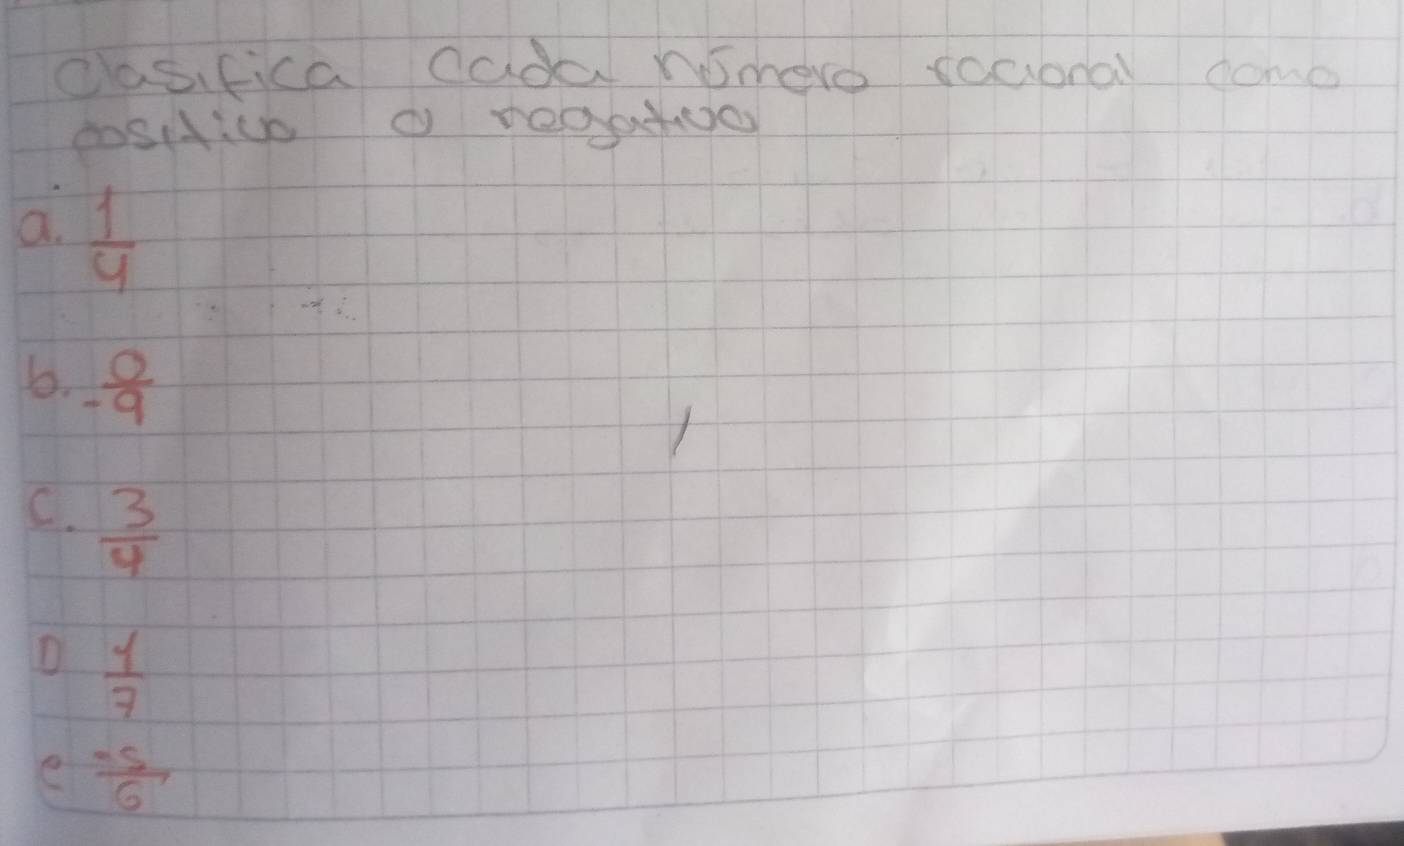 Clasifica cada número racional como
positivo o negativo
a. 1/4
b. 0/-9
c. 3/4
D 1/7
e -5/6